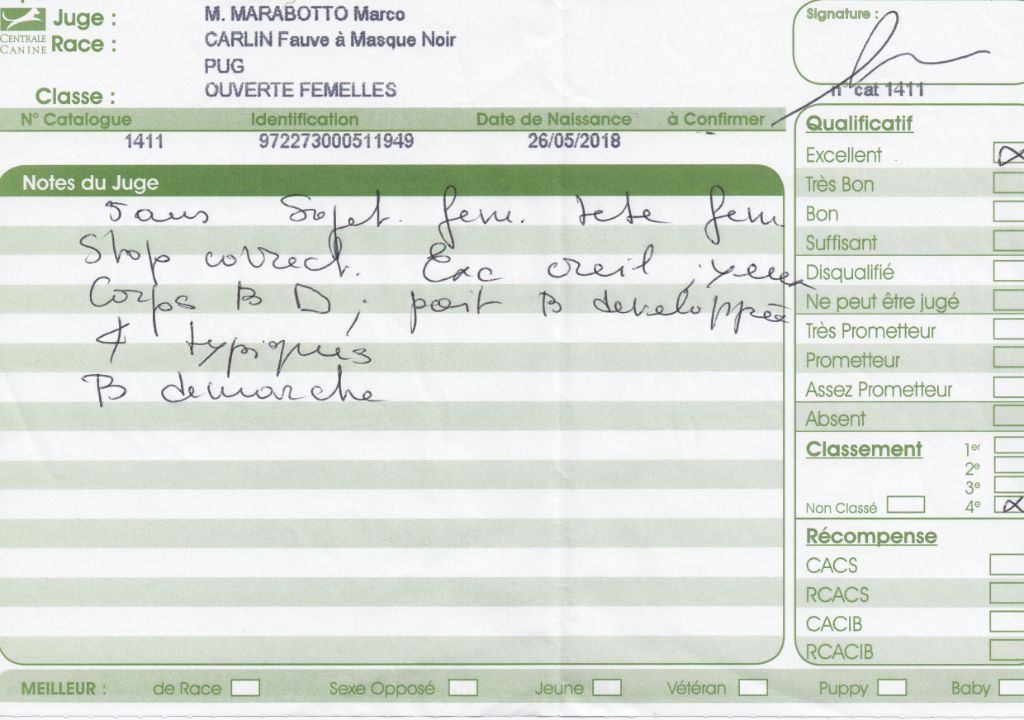 Juge : M. MARABOTTO Marco
CENTRALE
CANINE
Race : CARLIN Fauve à Masque Noir
PUG
Classe : OUVERTE FEMELLES
Signature :
n° cat 1411
N° Catalogue Identification Date de Naissance à Confirmer
1411 972273000511949 26/05/2018
Notes du Juge
5 ans Sujet. fem. tete fem.
Stop correct. Exc oreil, yeux
Corps B D ; poit B developpée
& typiques
B demarche
Qualificatif
Excellent
Très Bon
Bon
Suffisant
Disqualifié
Ne peut être jugé
Très Prometteur
Prometteur
Assez Prometteur
Absent
Classement 1er
2e
3e
Non Classé 4e
Récompense
CACS
RCACS
CACIB
RCACIB
MEILLEUR : de Race Sexe Opposé Jeune Vétéran Puppy Baby